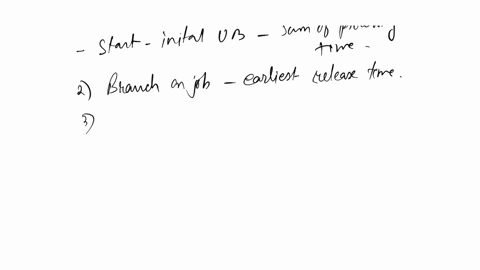 - Start - inital UB - sum of
time -
2) Branch on job - earliest release time.
3)